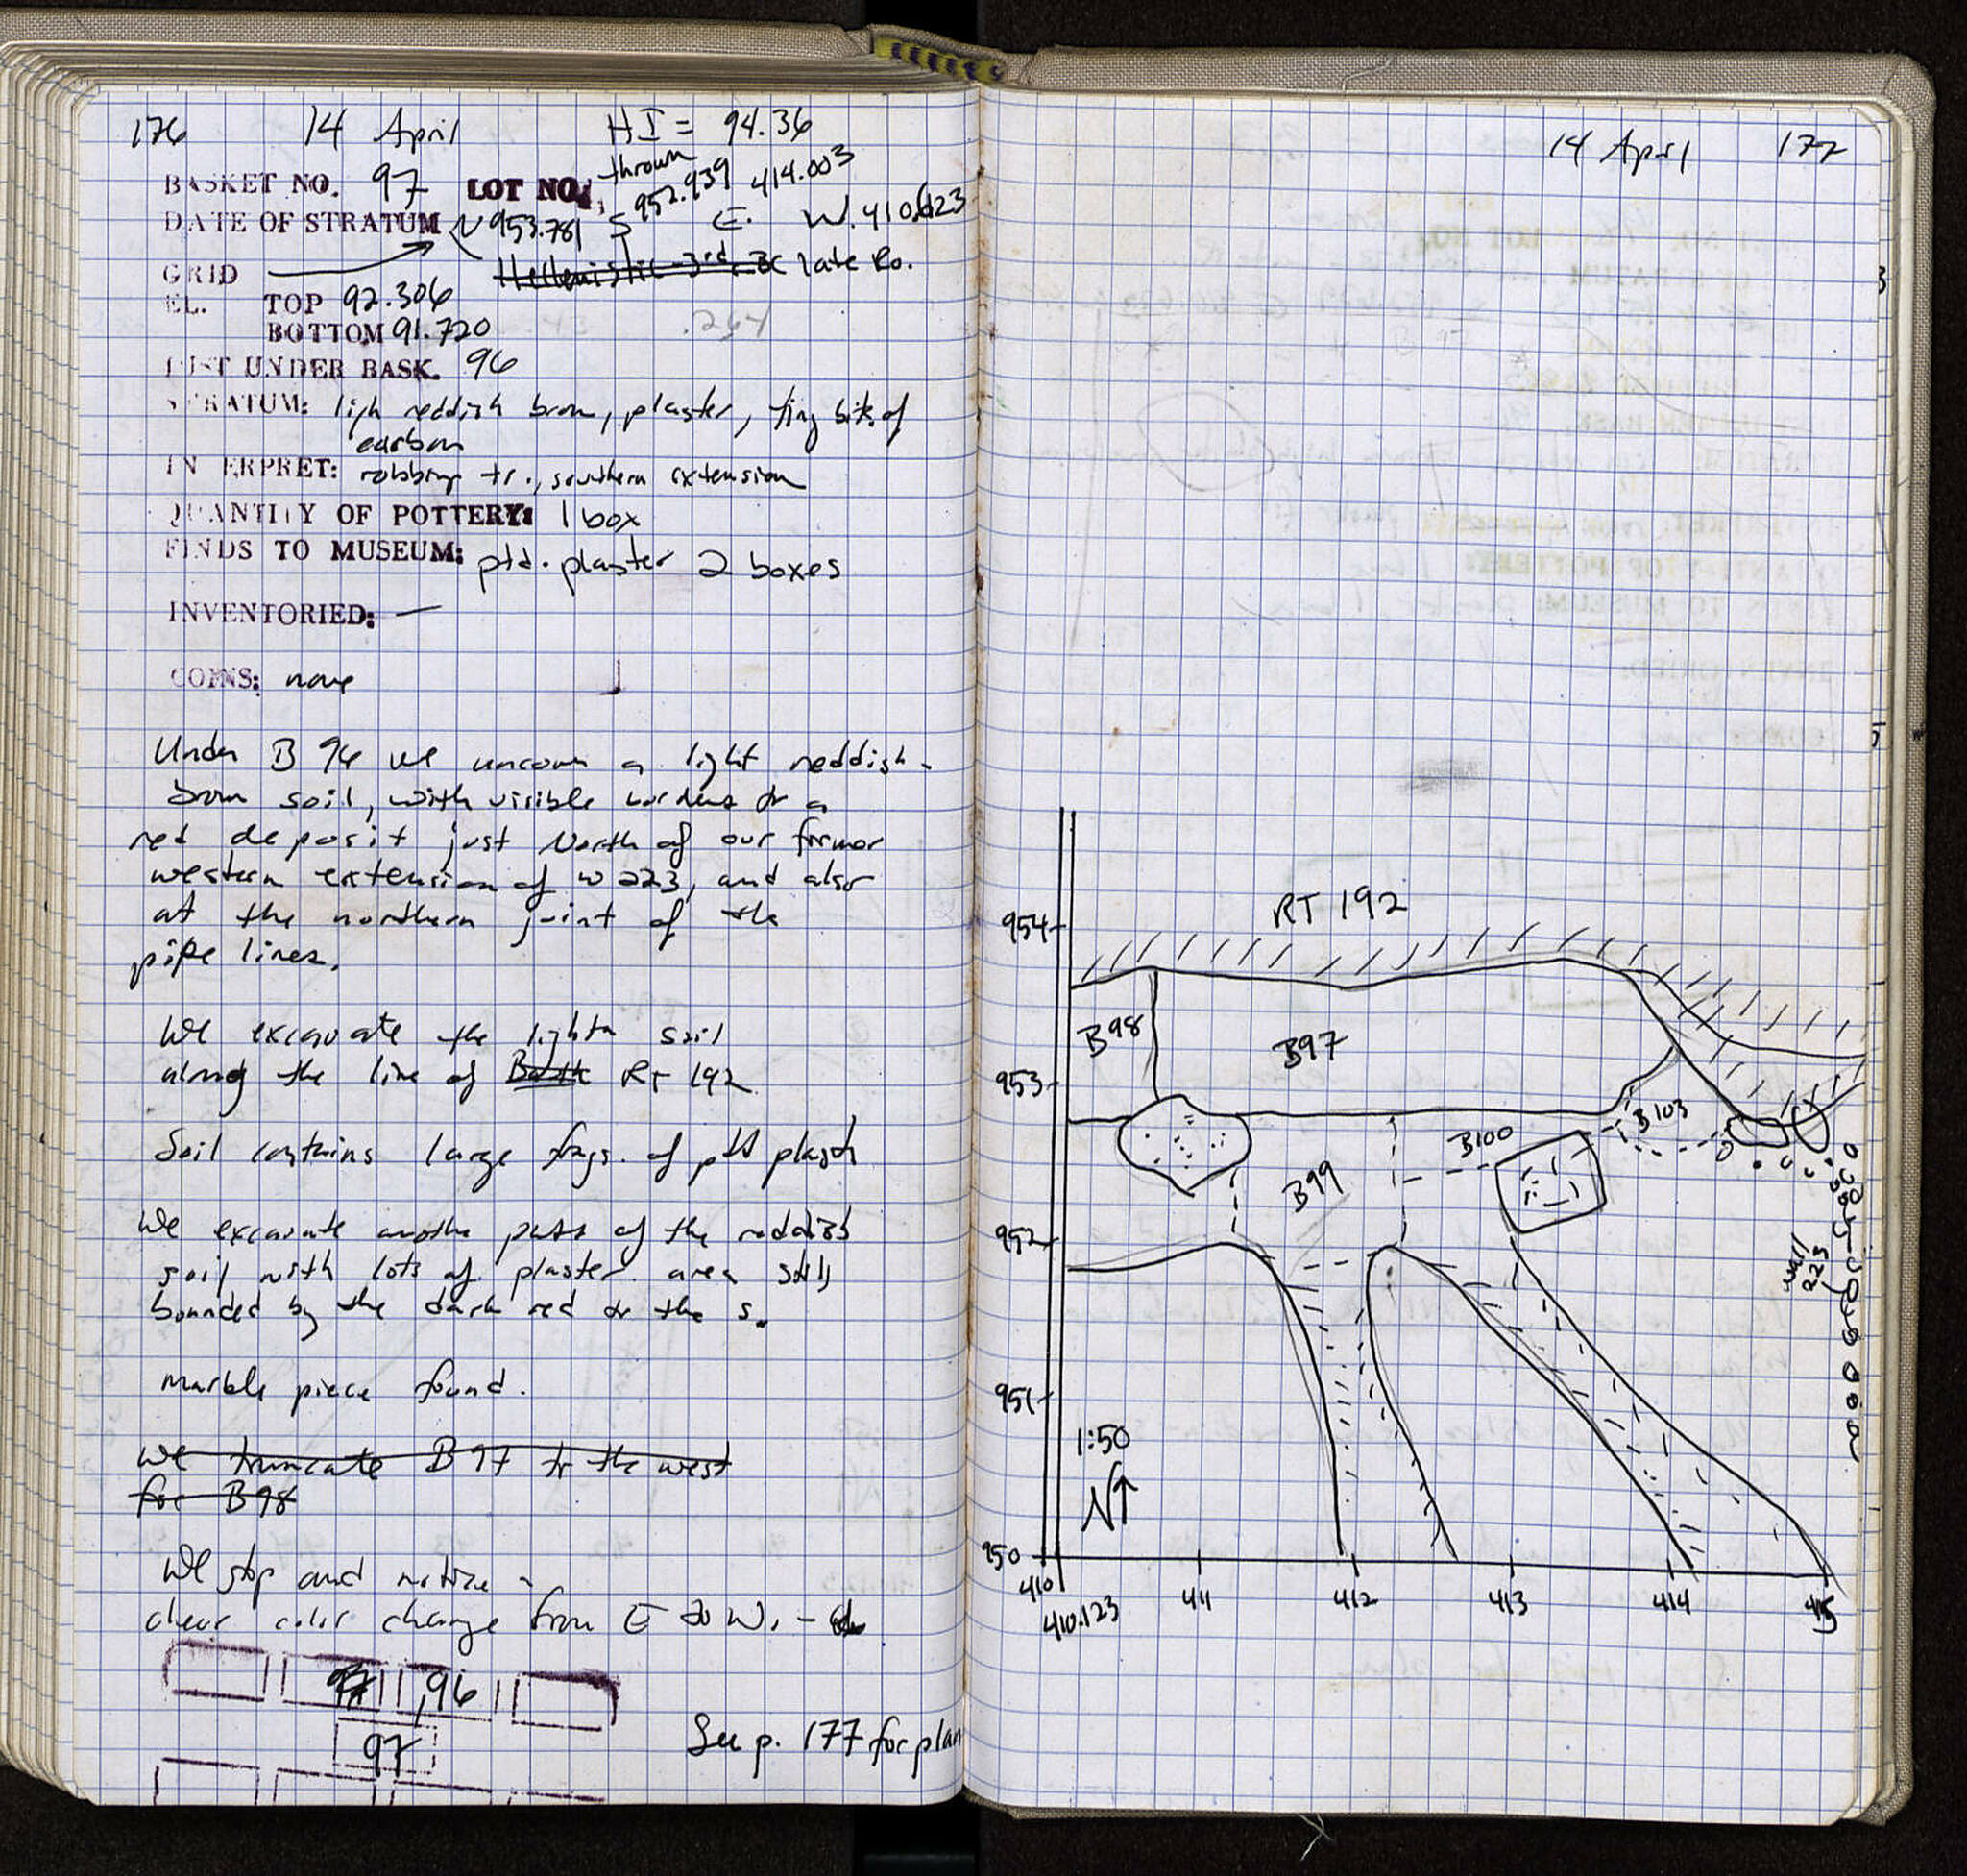 176 14 April HI = 94.36
BASKET NO. 97 LOT NO. thrown
DATE OF STRATUM N 953.781 S 952.939 E. 414.003 W. 410.623
Hellenistic 3rd BC late Ro.
GRID
EL. TOP 92.306
BOTTOM 91.720 .264
JUST UNDER BASK. 96
STRATUM: ligh reddish brow, plaster, tiny bits of
carbon
INTERPRET: robbing tr., southern extension
QUANTITY OF POTTERY: 1 box
FINDS TO MUSEUM: ptd. plaster 2 boxes
INVENTORIED: —
COINS: none
Under B 96 we uncover a light reddish-
brown soil, with visible borders to a
red deposit just North of our former
western extension of W 223, and also
at the northern joint of the
pipe lines.
We excavate the lighter soil
along the line of RT 192
Soil contains large frags. of ptd plaster
We excavate another pass of the reddish
soil with lots of plaster. area still
bounded by the dark red to the S.
marble piece found.
We truncate B 97 to the west
for B98
We stop and notice a
clear color change from E to W. -
,96
97
See p. 177 for plan
14 April 177
RT 192
954
B98
B97
953
B103
B100
B99
952
wall
223
951
1:50
N↑
950
410
410.123
411
412
413
414
415